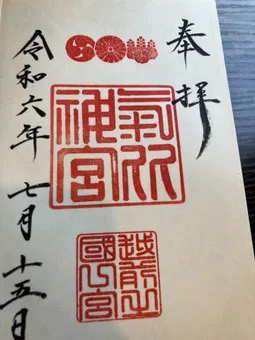 奉拝
氣比
神宮
越前之
國一宮
令和六年七月十五日